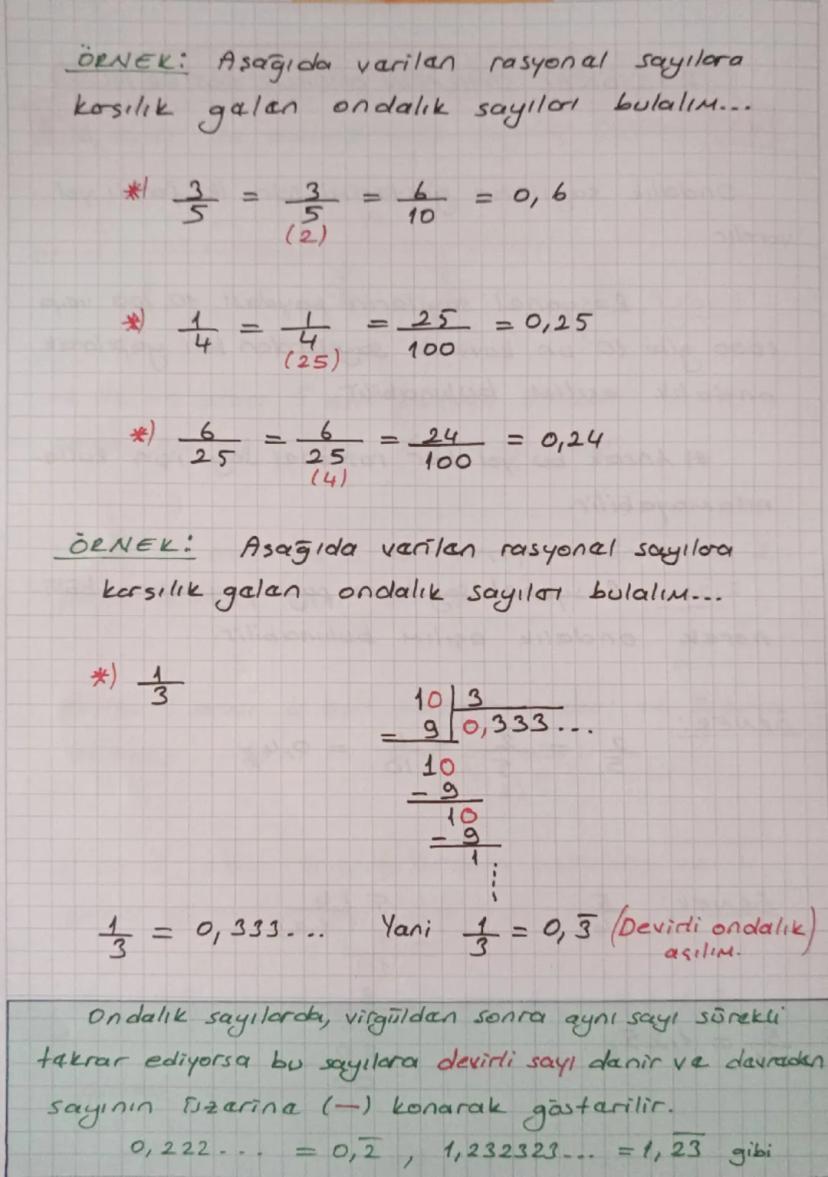 ÖRNEK: Aşağıda verilen rasyonel sayılara
karşılık gelen ondalık sayıları bulalım...
*) 3/5 = 3/5 (2) = 6/10 = 0,6
*) 1/4 = 1/4 (25) = 25/100 = 0,25
*) 6/25 = 6/25 (4) = 24/100 = 0,24
ÖRNEK: Aşağıda verilen rasyonel sayılara
karşılık gelen ondalık sayıları bulalım...
*) 1/3
10 | 3
- 9 | 0,333...
10
- 9
10
- 9
1
1/3 = 0,333... Yani 1/3 = 0,3̅ (Devirli ondalık)
açılım.
Ondalık sayılarda, virgülden sonra aynı sayı sürekli
tekrar ediyorsa bu sayılara devirli sayı denir ve devreden
sayının üzerine (—) konarak gösterilir.
0,222... = 0,2̅ , 1,232323... = 1,2̅3̅ gibi